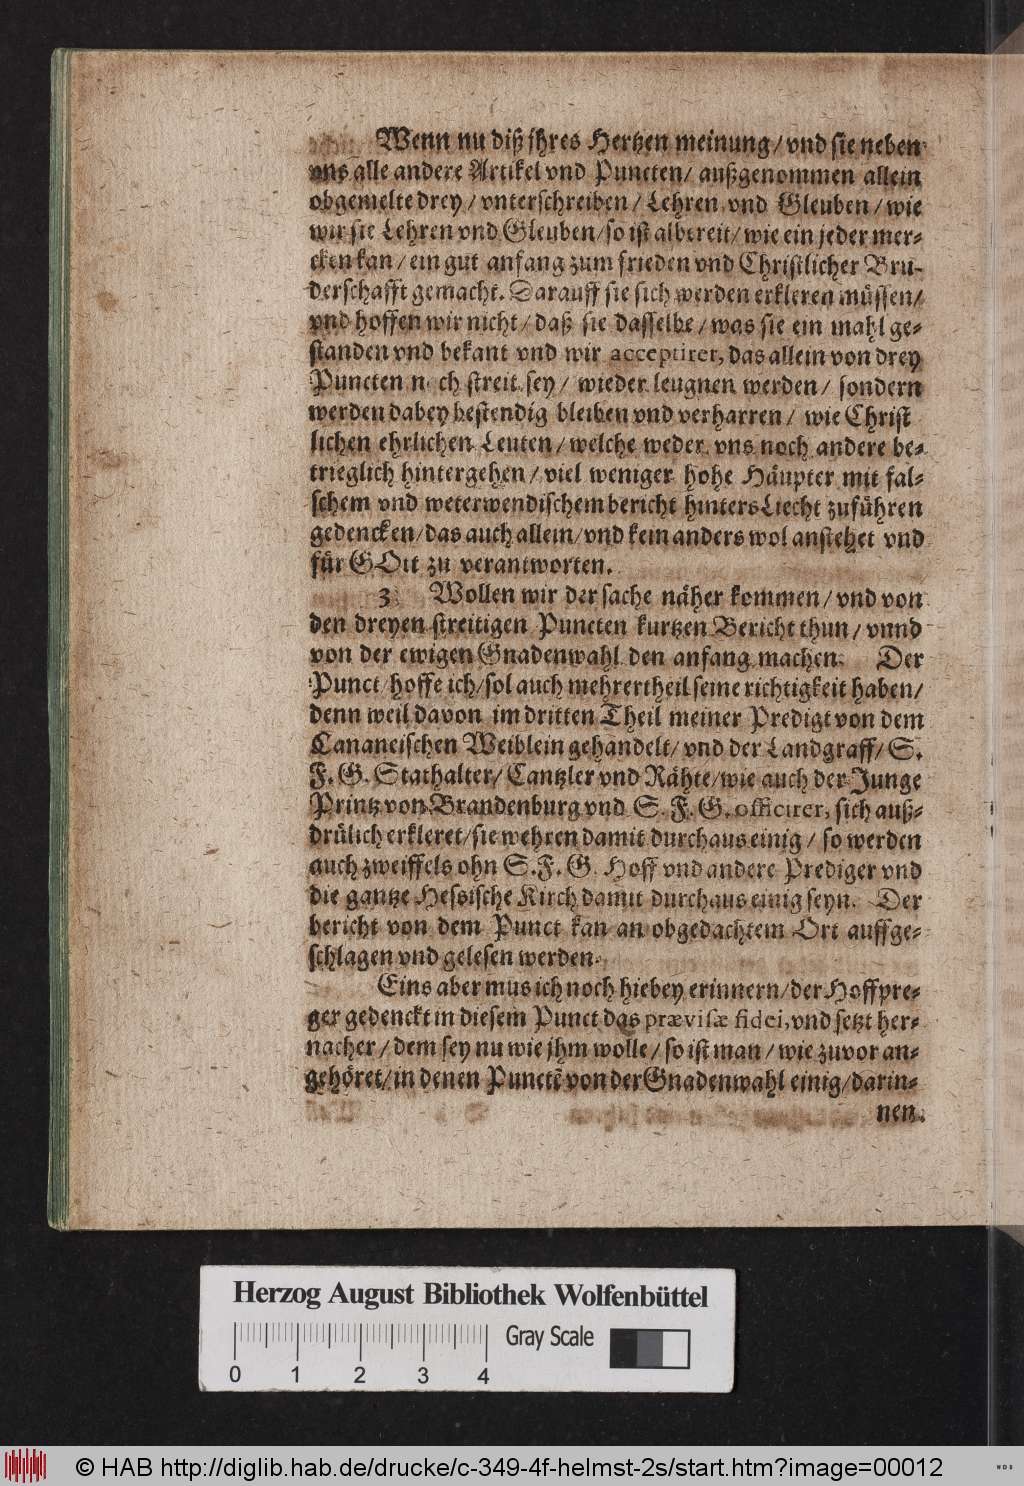 Wenn nu diß jhres Hertzen meinung/ vnd sie neben
vns alle andere Artikel vnd Puncten/ außgenommen allein
obgemelte drey/ vnterschreiben/ Lehren vnd Gleuben/ wie
wir sie Lehren vnd Gleuben/ so ist albereit/ wie ein jeder mer-
cken kan/ ein gut anfang zum frieden vnd Christlicher Bru-
derschafft gemacht. Darauff sie sich werden erkleren müssen/
vnd hoffen wir nicht/ daß sie dasselbe/ was sie ein mahl ge-
standen vnd bekant vnd wir acceptiret, das allein von drey
Puncten noch streit sey/ wieder leugnen werden/ sondern
werden dabey bestendig bleiben vnd verharren/ wie Christ
lichen ehrlichen Leuten/ welche weder vns noch andere be-
trieglich hintergehen/ viel weniger hohe Häupter mit fal-
schem vnd weterwendischem bericht hinters Liecht zuführen
gedencken/ das auch allein/ vnd kein anders wol anstehet vnd
für GOtt zu verantworten.
3. Wollen wir der sache näher kommen/ vnd von
den dreyen streitigen Puncten kurtzen Bericht thun/ vnnd
von der ewigen Gnadenwahl den anfang machen. Der
Punct/ hoffe ich/ sol auch mehrertheil seine richtigkeit haben/
denn weil davon im dritten Theil meiner Predigt von dem
Cananeischen Weiblein gehandelt/ vnd der Landgraff/ S.
F. G. Stathalter/ Cantzler vnd Rähte/ wie auch der Junge
Printz von Brandenburg vnd S. F. G. officirer, sich auß-
drülich erkleret/ sie wehren damit durchaus einig/ so werden
auch zweiffels ohn S. F. G. Hoff vnd andere Prediger vnd
die gantze Hessische Kirch damit durchaus einig seyn. Der
bericht von dem Punct kan an obgedachtem Ort auffge-
schlagen vnd gelesen werden.
Eins aber mus ich noch hiebey erinnern/ der Hoffpre-
ger gedenckt in diesem Punct das prævisæ fidei, vnd setzt her-
nacher/ dem sey nu wie jhm wolle/ so ist man/ wie zuvor an-
gehöret/ in denen Punctẽ von der Gnadenwahl einig/ darin-
nen
Herzog August Bibliothek Wolfenbüttel
Gray Scale
0 1 2 3 4
© HAB http://diglib.hab.de/drucke/c-349-4f-helmst-2s/start.htm?image=00012